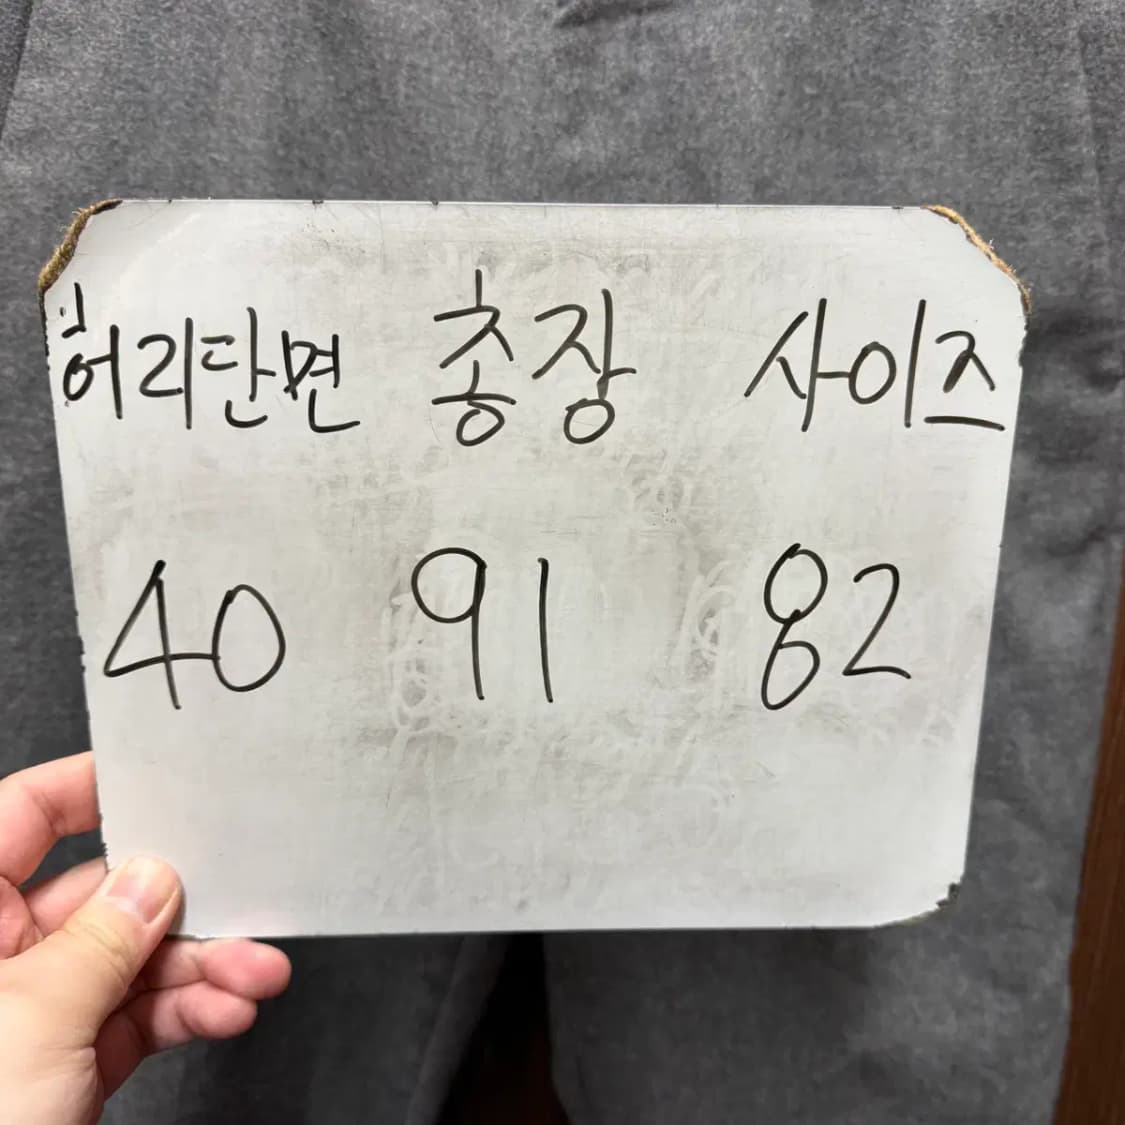 허리단면 총장 사이즈
40 91 82